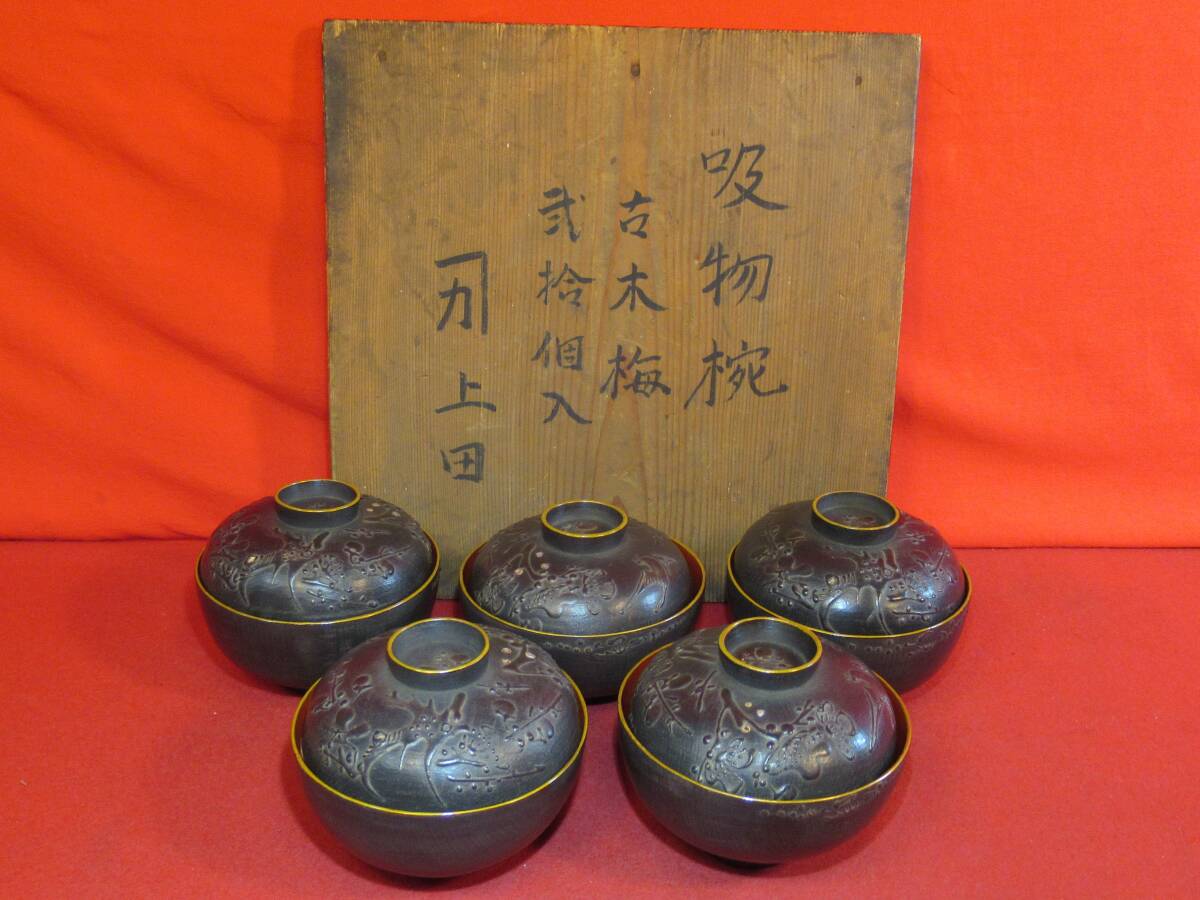 吸物椀
古木梅
弐拾個入
上田